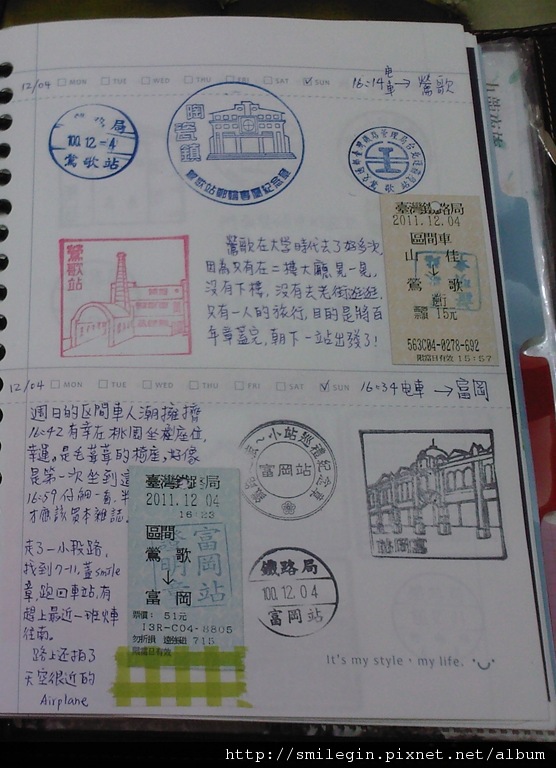 12/04 MON TUE WED THU FRI SAT SUN 16:14 电車→ 鶯歌
局
100.12.-4
鶯歌站
陶瓷鎮
臺灣鐵路局
2011.12.04
區間車
山 佳
↓
鶯 歌
15元
563C04-0278-692
限當日有效 15:57
鶯歌站
鶯歌在大学時代去了好多次,
因為只有在二樓大廳晃一晃,
沒有下樓,沒有去老街逛逛,
只有一人的旅行,目的是將百
年章蓋完,朝下一站出發了!
12/04 MON TUE WED THU FRI SAT SUN 16:34电車 → 富岡
週日的区間車人潮擁擠
16:42有幸在桃園坐座位,
幸運,是毛茸茸的椅座,好像
是第一次坐到這
16:59仔細一看,半
才應該買本雜誌
走了一小段路,
找到7-11,蓋smile
章,跑回車站,有
趕上最近一班火車
往南。
路上还拍了
天空很近的
Airplane
臺灣鐵路局
2011.12.04
16:23
區間
鶯 歌
↓
富 岡
票價: 51元
13R-C04-8805
勿折損 715
限當日有效
小站巡禮紀念章
富岡站
鐵路局
100.12.04
富岡站
It's my style, my life.
http://smilegin.pixnet.net/album